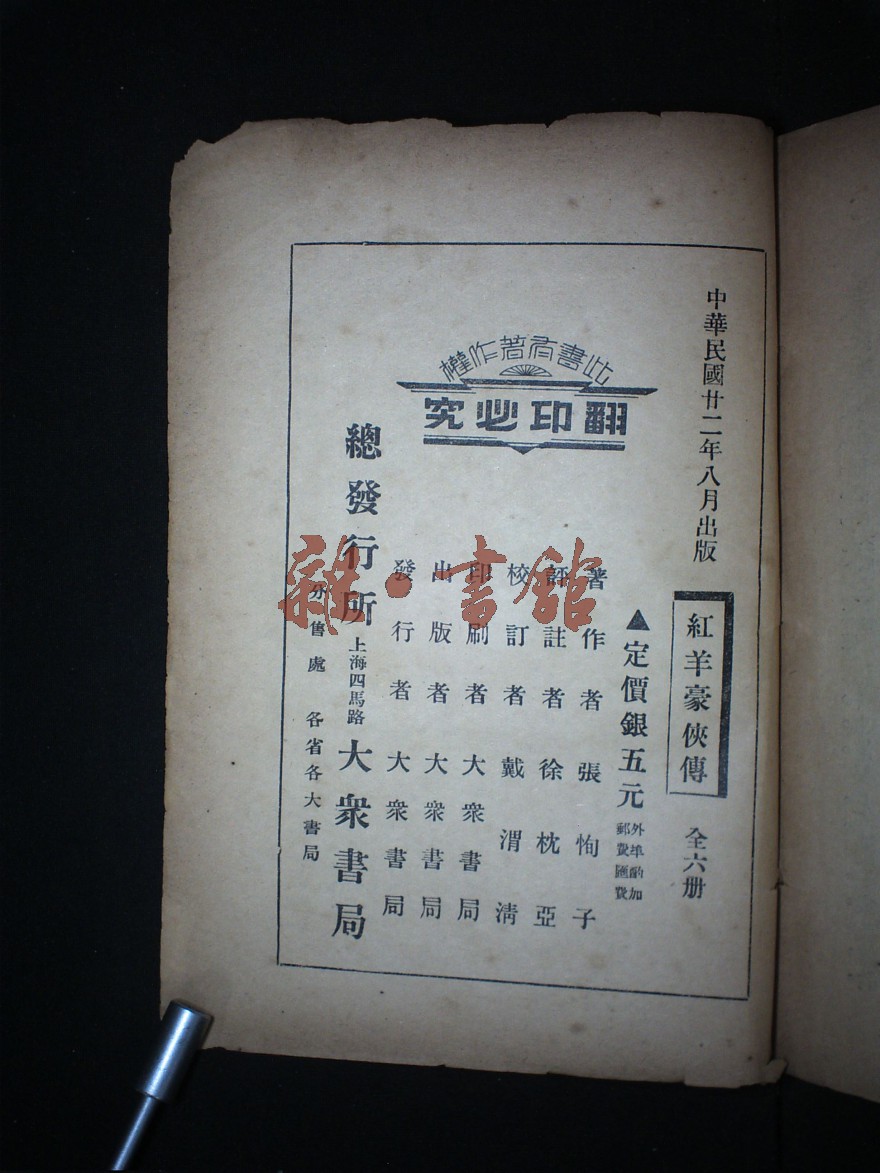 中華民國廿二年八月出版
紅羊豪俠傳
全六册
▲定價銀五元
外埠酌加
郵費匯費
著作者張恂子
評註者徐枕亞
校訂者戴渭清
印刷者大衆書局
出版者大衆書局
發行者大衆書局
此書有著作權
翻印必究
總發行所上海四馬路大衆書局
分售處各省各大書局
雜·書館